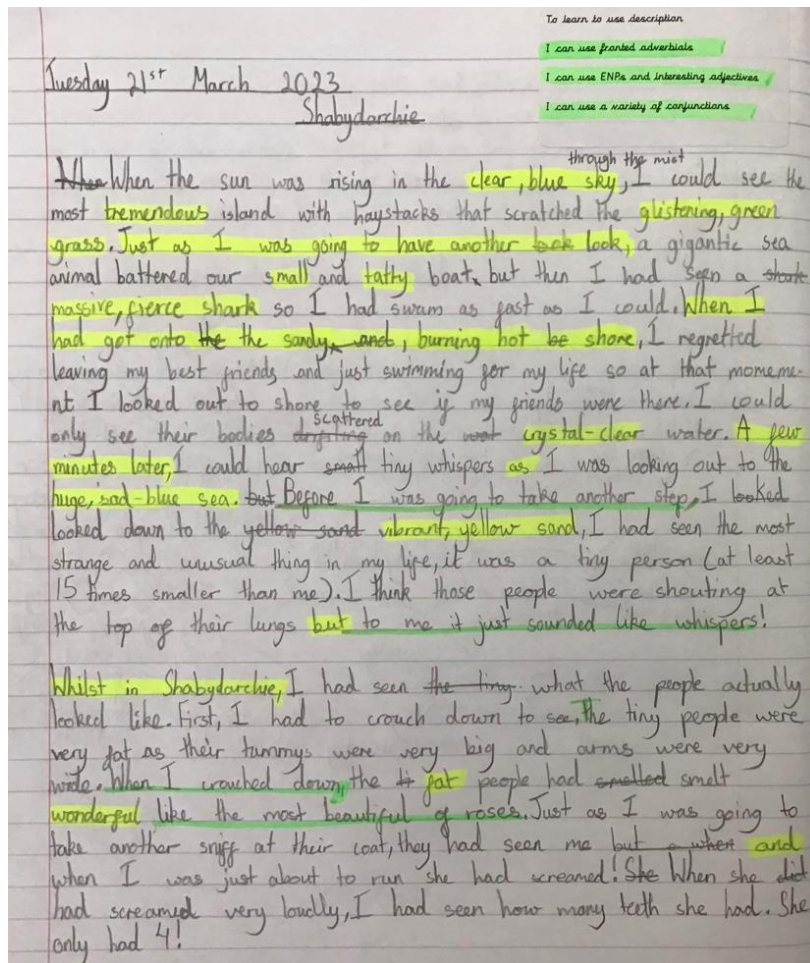 To learn to use description
I can use fronted adverbials
I can use ENPs and interesting adjectives
I can use a variety of conjunctions
Tuesday 21st March 2023
Shabydarchie
through the mist
When When the sun was rising in the clear, blue sky, I could see the
most tremendous island with haystacks that scratched the glistening, green
grass. Just as I was going to have another look look, a gigantic sea
animal battered our small and tatty boat, but then I had seen a shark
massive, fierce shark so I had swam as fast as I could. When I
had got onto the the sandy, and, burning hot be shore, I regretted
leaving my best friends and just swimming for my life so at that momeme-
nt I looked out to shore to see if my friends were there. I could
scattered
only see their bodies drifting on the crystal-clear water. A few
minutes later, I could hear small tiny whispers as I was looking out to the
huge, sad-blue sea. but Before I was going to take another step, I looked
looked down to the yellow sand vibrant, yellow sand, I had seen the most
strange and unusual thing in my life, it was a tiny person (at least
15 times smaller than me). I think those people were shouting at
the top of their lungs but to me it just sounded like whispers!
Whilst in Shabydarchie, I had seen the tiny what the people actually
looked like. First, I had to crouch down to see, The tiny people were
very fat as their tummys were very big and arms were very
wide. When I crouched down, the fat people had smelled smelt
wonderful like the most beautiful of roses. Just as I was going to
take another sniff at their coat, they had seen me but when and
when I was just about to run she had screamed! She When she did
had screamed very loudly, I had seen how many teeth she had. She
only had 4!